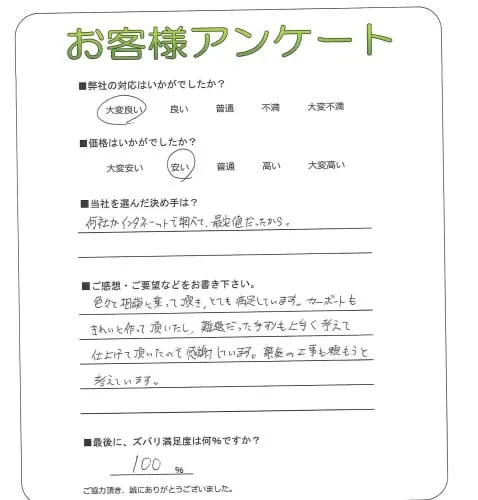 お客様アンケート
■弊社の対応はいかがでしたか？
大変良い 良い 普通 不満 大変不満
■価格はいかがでしたか？
大変安い 安い 普通 高い 大変高い
■当社を選んだ決め手は？
何社かインターネットで調べて、最安値だったから。
■ご感想・ご要望などをお書き下さい。
色々と相談に乗って頂き、とても満足しています。カーポートも
きれいに作って頂いたし、難題だった手すりも上手く考えて
仕上げて頂いたのも感謝しています。裏庭の工事も頼もうと
考えています。
■最後に、ズバリ満足度は何％ですか？
100 %
ご協力頂き、誠にありがとうございました。